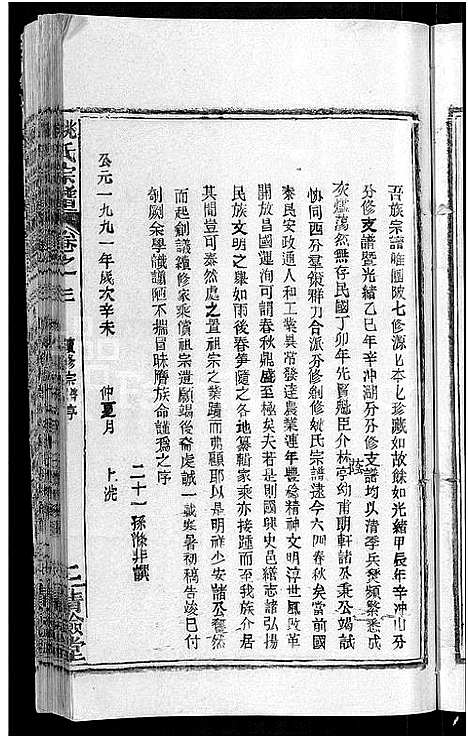 吾族宗譜唯團陂七修源七本乜珍藏如故餘如光緒甲辰年辛冲山分
分修支譜暨光緒乙巳年辛冲湖分分修支譜均以清季兵燹頻繁悉成
灰燼蕩然無存民國丁卯年先賢魁臣介林亭幼甫朝軒諸公秉公竭誠
蔭
協同西分羣策群力合派分修創修姚氏宗譜逮今六四春秋矣當前國
泰民安政通人和工業具常發達農業連年豐稔精神文明淳世風改革
開放昌國運洵可謂春秋鼎盛至極矣夫若是則國興史邑繕志諳弘揚
民族文明之舉如雨後春笋隨之各地纂輯家乘亦接踵而至我族介居
其間豈可泰然處之置祖宗之業蹟而弗顧耶以是明祥少安諸公奮然
而起創議續修家乘償祖宗遺願竭後裔處誠一載寒暑初稿告竣已付
剞劂余學識譾陋不揣冒昧膺族命謹為之序
二十一孫滌非譔
公元一九九一年歲次辛未 仲夏月 上浣
姚氏宗譜 卷之 三 續修宗譜序